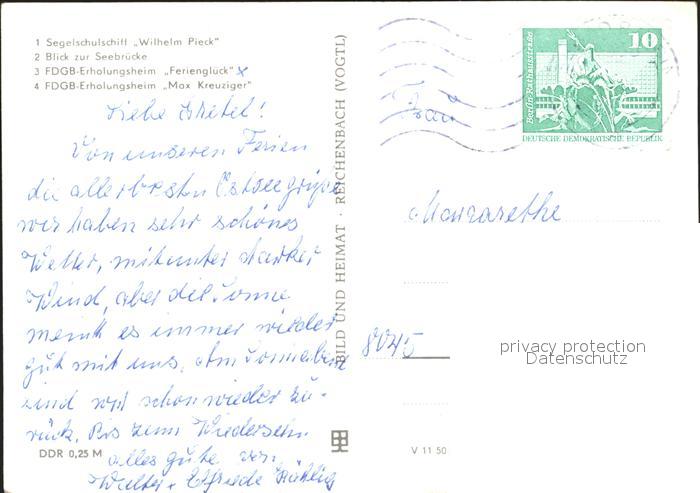 1 Segelschulschiff „Wilhelm Pieck"
2 Blick zur Seebrücke
3 FDGB-Erholungsheim „Ferienglück" x
4 FDGB-Erholungsheim „Max Kreuziger"
Liebe Gretel!
Von unseren Ferien
die allerbesten Ostseegrüße
wir haben sehr schönes
Wetter, mitunter starker
Wind, aber die Sonne
meint es immer wieder
gut mit uns. Am Sonnabend
sind wir schon wieder zu-
rück. Bis zum Wiedersehn
alles gute von
Walter + Elfriede
DDR 0,25 M
BILD UND HEIMAT · REICHENBACH (VOGTL)
V 11 50
Berlin-Rathausstraße
10
DEUTSCHE DEMOKRATISCHE REPUBLIK
Frau
Margarethe
8045
privacy protection
Datenschutz